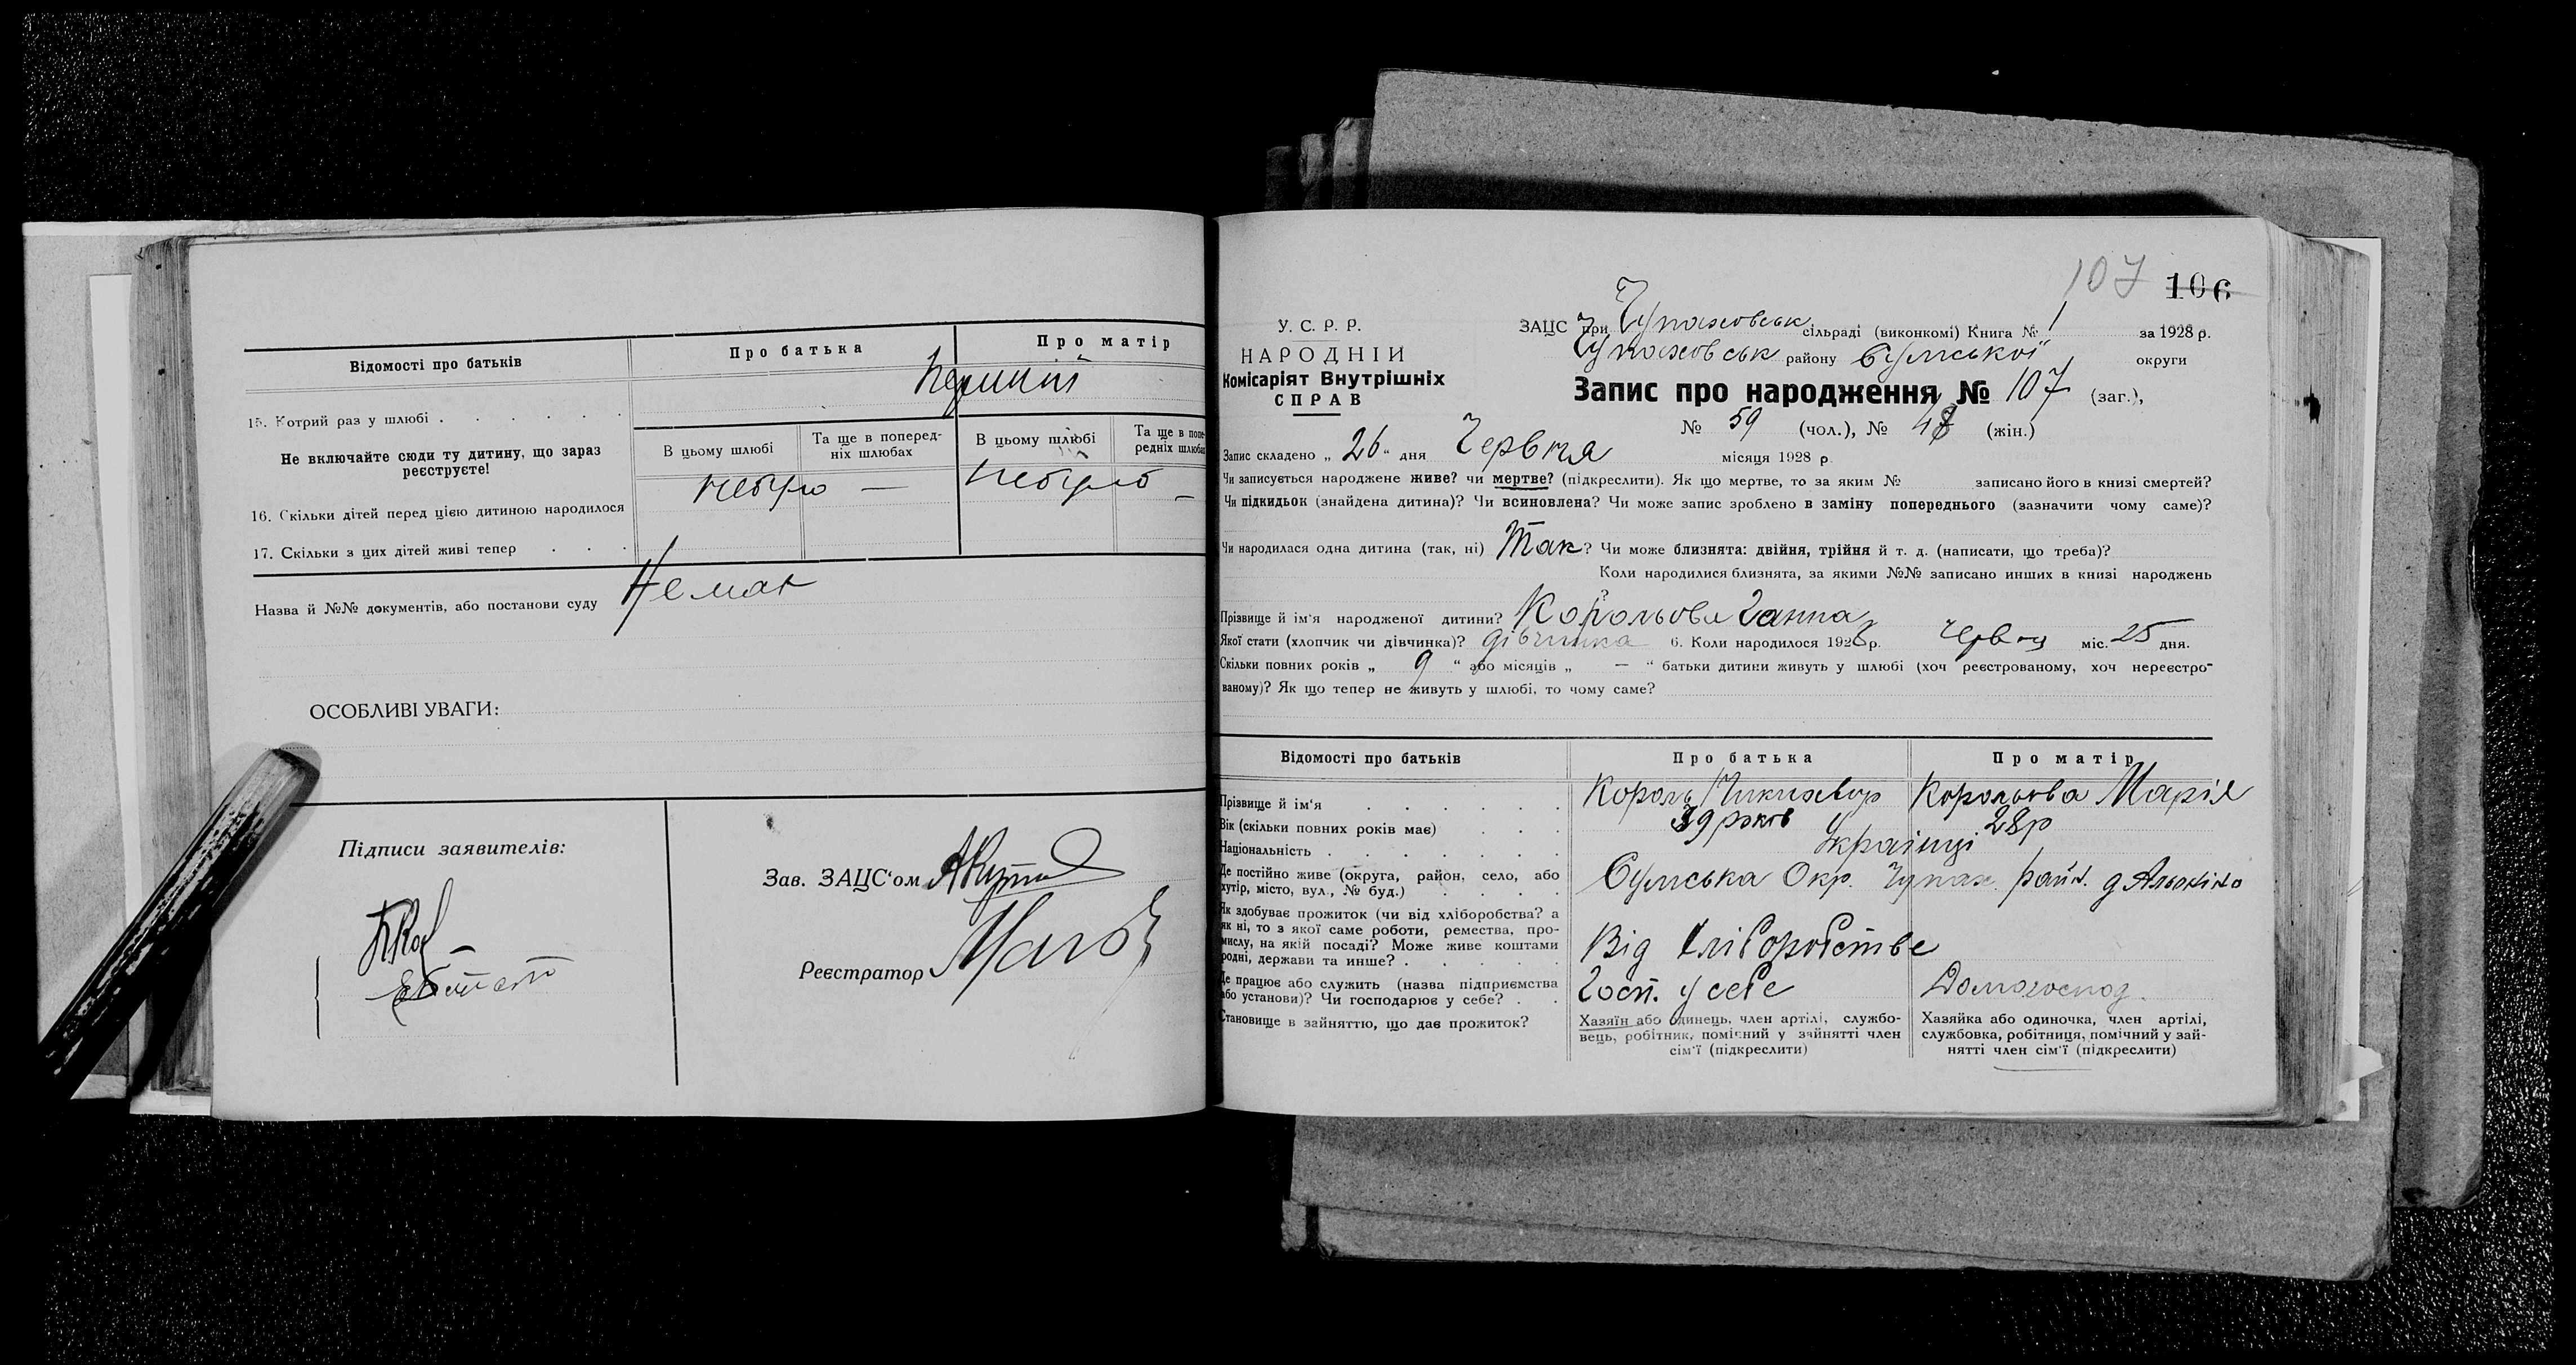 Відомості про батьків
Про батька
Про матір
15. Котрий раз у шлюбі . . . . . .
Перший
Не включайте сюди ту дитину, що зараз
реєструєте!
В цьому шлюбі
Та ще в поперед-
ніх шлюбах
В цьому шлюбі
Та ще в попе-
редніх шлюбах
16. Скільки дітей перед цією дитиною народилося
небуло — небуло —
17. Скільки з цих дітей живі тепер . . .
Назва й №№ документів, або постанови суду Немає
ОСОБЛИВІ УВАГИ:
Підписи заявителів:
Зав. ЗАЦС'ом
Реєстратор
107 106
У. С. Р. Р.
НАРОДНІЙ
Комісаріят Внутрішніх
СПРАВ
ЗАЦС при Чупаховськ сільраді (виконкомі) Книга № 1 за 1928 р.
Чупаховськ району Сумської округи
Запис про народження № 107 (заг.),
№ 59 (чол.), № 48 (жін.)
Запис складено „ 26 “ дня Червня місяця 1928 р.
Чи записується народжене живе? чи мертве? (підкреслити). Як що мертве, то за яким № записано його в книзі смертей?
Чи підкидьок (знайдена дитина)? Чи всиновлена? Чи може запис зроблено в заміну попереднього (зазначити чому саме)?
Чи народилася одна дитина (так, ні) Так? Чи може близнята: двійня, трійня й т. д. (написати, що треба)?
Коли народилися близнята, за якими №№ записано инших в книзі народжень
?
Прізвище й ім'я народженої дитини? Корольова Ганна
Якої стати (хлопчик чи дівчинка)? дівчинка 6. Коли народилося 1928 р. Червня міс. 25 дня.
Скільки повних років „ 9 “ або місяців „ — “ батьки дитини живуть у шлюбі (хоч реєстрованому, хоч нереєстро-
ваному)? Як що тепер не живуть у шлюбі, то чому саме?
Відомості про батьків
Про батька
Про матір
Прізвище й ім'я . . . . . .
Король Никихвор
Корольова Марія
Вік (скільки повних років має) . . .
39 років
28р
Національність . . . . . . .
Українці
Де постійно живе (округа, район, село, або
хутір, місто, вул., № буд.) . . . .
Сумська Окр. Чупах. район.
Як здобуває прожиток (чи від хліборобства? а
як ні, то з якої саме роботи, ремества, про-
мислу, на якій посаді? Може живе коштами
родні, держави та инше? . . . . .
Від Хліборобства
Де працює або служить (назва підприємства
або установи)? Чи господарює у себе? . .
Госп. у себе
Домогоспод.
Становище в зайняттю, що дає прожиток?
Хазяїн або одинець, член артілі, службо-
вець, робітник, помічний у зайнятті член
сім'ї (підкреслити)
Хазяйка або одиночка, член артілі,
службовка, робітниця, помічний у зай-
нятті член сім'ї (підкреслити)